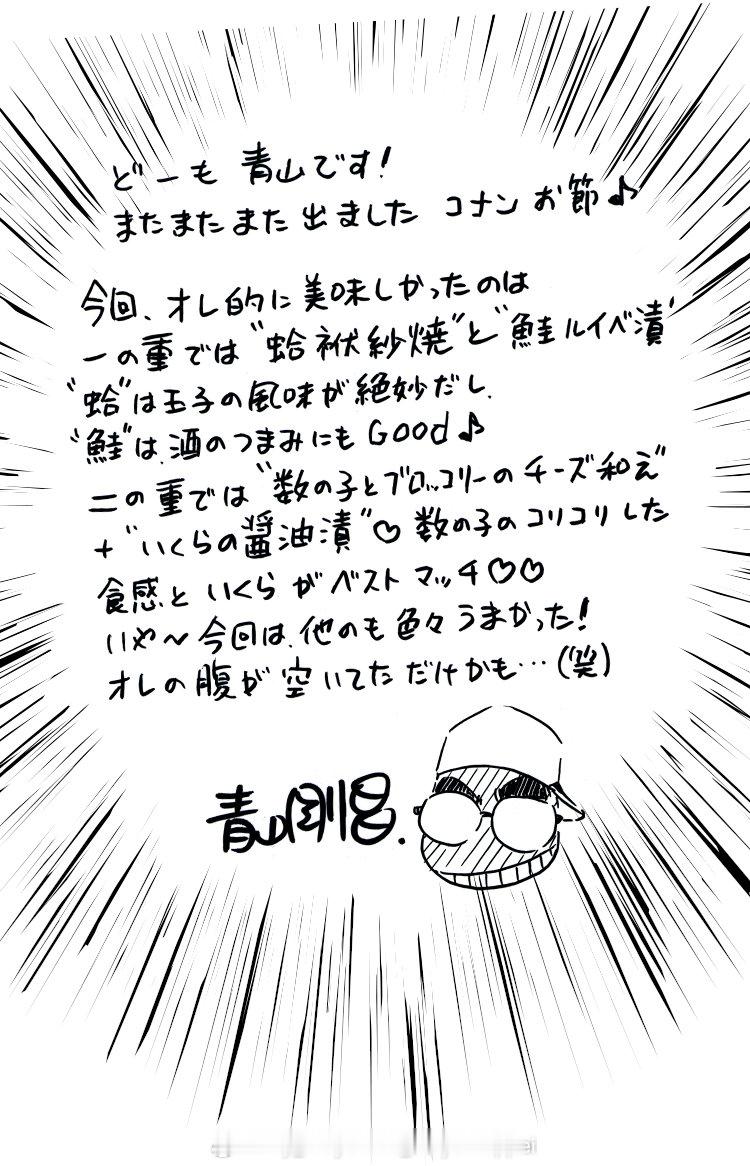 どーも 青山です!
またまたまた出ました コナンお節♪
今回、オレ的に美味しかったのは
一の重では“蛤袱紗焼”と“鮭ルイベ漬”
“蛤”は玉子の風味が絶妙だし、
“鮭”は、酒のつまみにもGood♪
二の重では“数の子とブロッコリーのチーズ和え”
+“いくらの醤油漬”♡ 数の子のコリコリした
食感と いくらが ベストマッチ♡♡
いや〜今回は、他のも色々うまかった!
オレの腹が空いてただけかも…(笑)
青山剛昌.